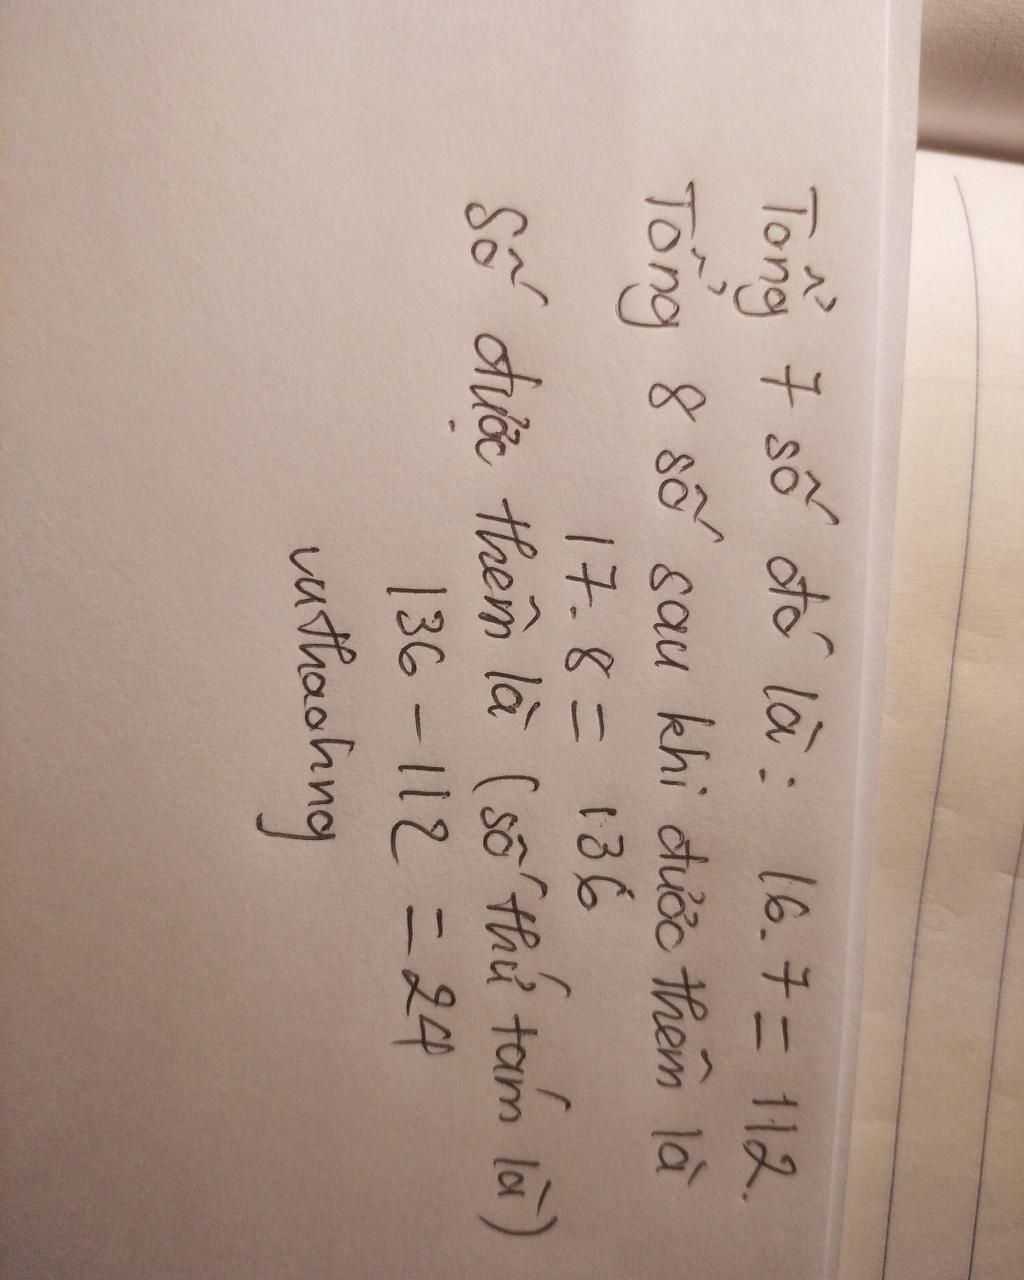 Tổng 7 số đó là: 16.7 = 112.
Tổng 8 số sau khi được thêm là
17.8 = 136
Số được thêm là (số thứ tám là)
136 - 112 = 24